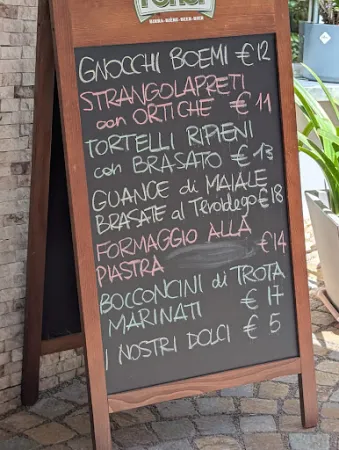 BIRRA·BIÈRE·BEER·BIER
GNOCCHI BOEMI €12
STRANGOLAPRETI
con ORTICHE €11
TORTELLI RIPIENI
con BRASATO €13
GUANCE di MAIALE
BRASATE al Teroldego €18
FORMAGGIO ALLA
PIASTRA €14
BOCCONCINI di TROTA
MARINATI €17
I NOSTRI DOLCI €5